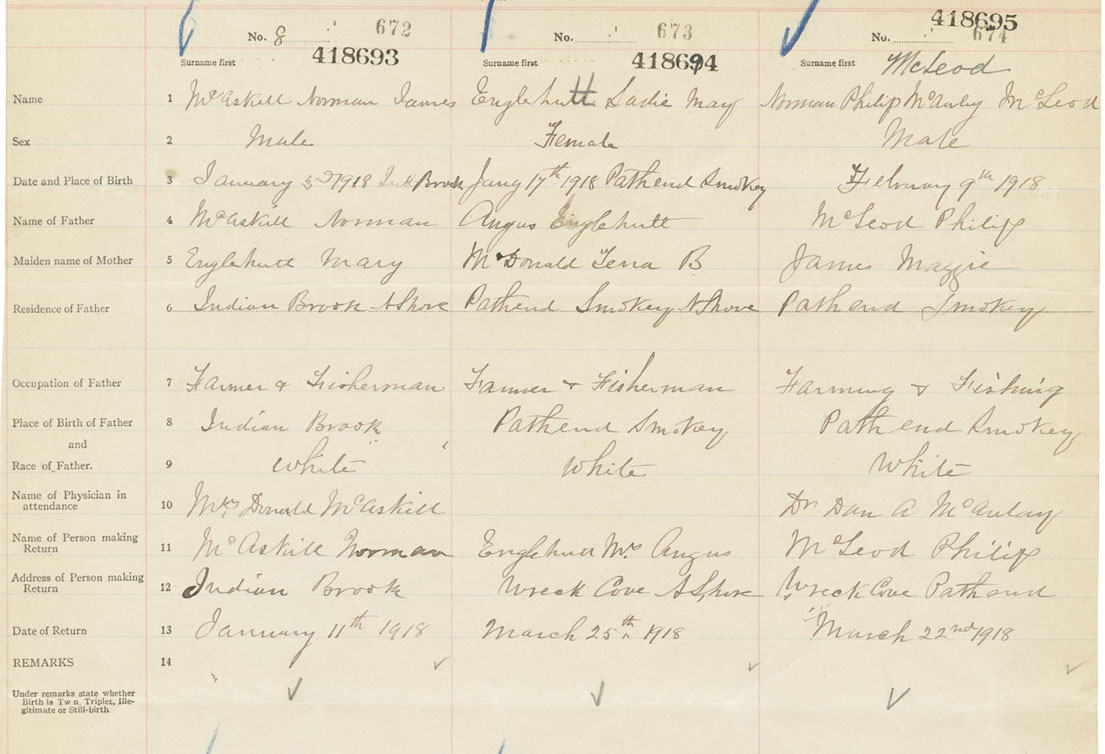 No. 8 672 No. 673 No. 674 418695
Surname first 418693 Surname first 418694 Surname first McLeod
Name 1 McAskill Norman James Englehutt Sadie May Norman Philip McAuley McLeod
Sex 2 Male Female Male
Date and Place of Birth 3 January 3rd 1918 Ind Brook Jany 17th 1918 Pathend Smokey Febuary 9th 1918
Name of Father 4 McAskill Norman Angus Englehutt McLeod Philip
Maiden name of Mother 5 Englehutt Mary McDonald Tena B James Maggie
Residence of Father 6 Indian Brook N Shore Pathend Smokey N Shore Pathend Smokey
Occupation of Father 7 Farmer & Fisherman Farmer & Fisherman Farming & Fishing
Place of Birth of Father 8 Indian Brook Pathend Smokey Pathend Smokey
and
Race of Father. 9 White White White
Name of Physician in
attendance 10 Mrs Donald McAskill Dr Dan A McAulay
Name of Person making
Return 11 McAskill Norman Englehutt Mrs Angus McLeod Philip
Address of Person making
Return 12 Indian Brook Wreck Cove N Shore Wreck Cove Pathend
Date of Return 13 January 11th 1918 March 25th 1918 March 22nd 1918
REMARKS 14
Under remarks state whether
Birth is Twin, Triplet, Ille-
gitimate or Still-birth